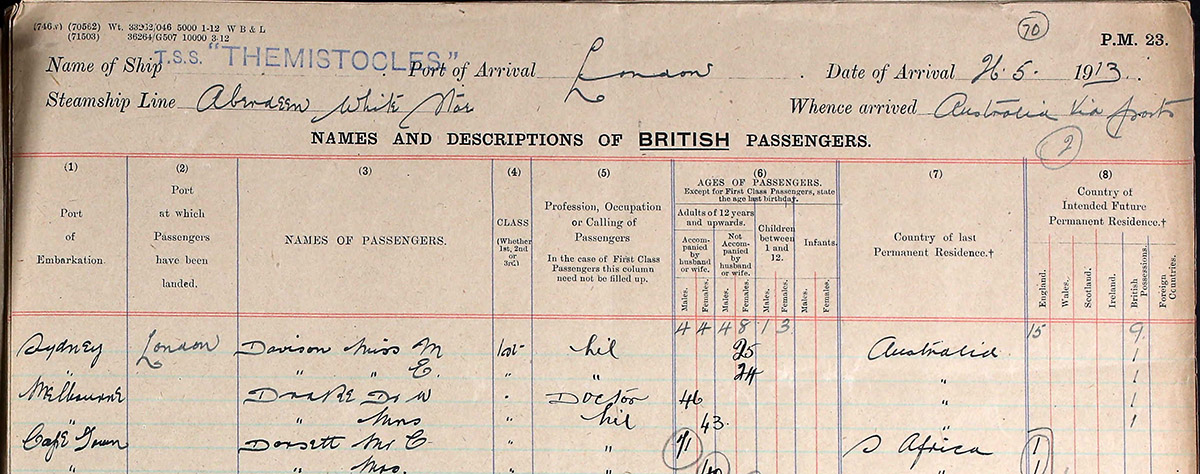 (746x) (70562) Wt. 33262/046 5000 1-12 W B & L
(71503) 36264/G507 10000 3-12
70
P.M. 23.
Name of Ship T.S.S. "THEMISTOCLES" Port of Arrival London Date of Arrival 26.5. 1913
Steamship Line Aberdeen White Star Whence arrived Australia via ports
NAMES AND DESCRIPTIONS OF BRITISH PASSENGERS.
2
(1) (2) (3) (4) (5) (6) (7) (8)
Port of Embarkation.
Port at which Passengers have been landed.
NAMES OF PASSENGERS.
CLASS (Whether 1st, 2nd or 3rd.)
Profession, Occupation or Calling of Passengers
In the case of First Class Passengers this column need not be filled up.
AGES OF PASSENGERS.
Except for First Class Passengers, state the age last birthday.
Adults of 12 years and upwards.
Accompanied by husband or wife.
Not Accompanied by husband or wife.
Children between 1 and 12.
Infants.
Males. Females. Males. Females. Males. Females. Males. Females.
Country of last Permanent Residence.†
Country of Intended Future Permanent Residence.†
England. Wales. Scotland. Ireland. British Possessions. Foreign Countries.
4 4 4 8 1 3 15 9
Sydney London Davison Miss M 1st nil 25 Australia 1
" " E. " " 24 " 1
Melbourne Drake Dr W " Doctor 46 " 1
" " Mrs " nil 43 " 1
Cape Town Dorsett Mr C " " 71 S Africa 1
" " Mrs. " 1